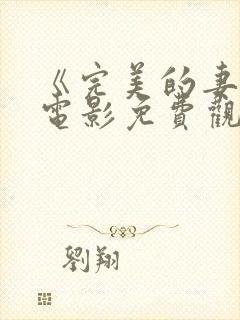 《完美的妻
電影免費觀
劉翔